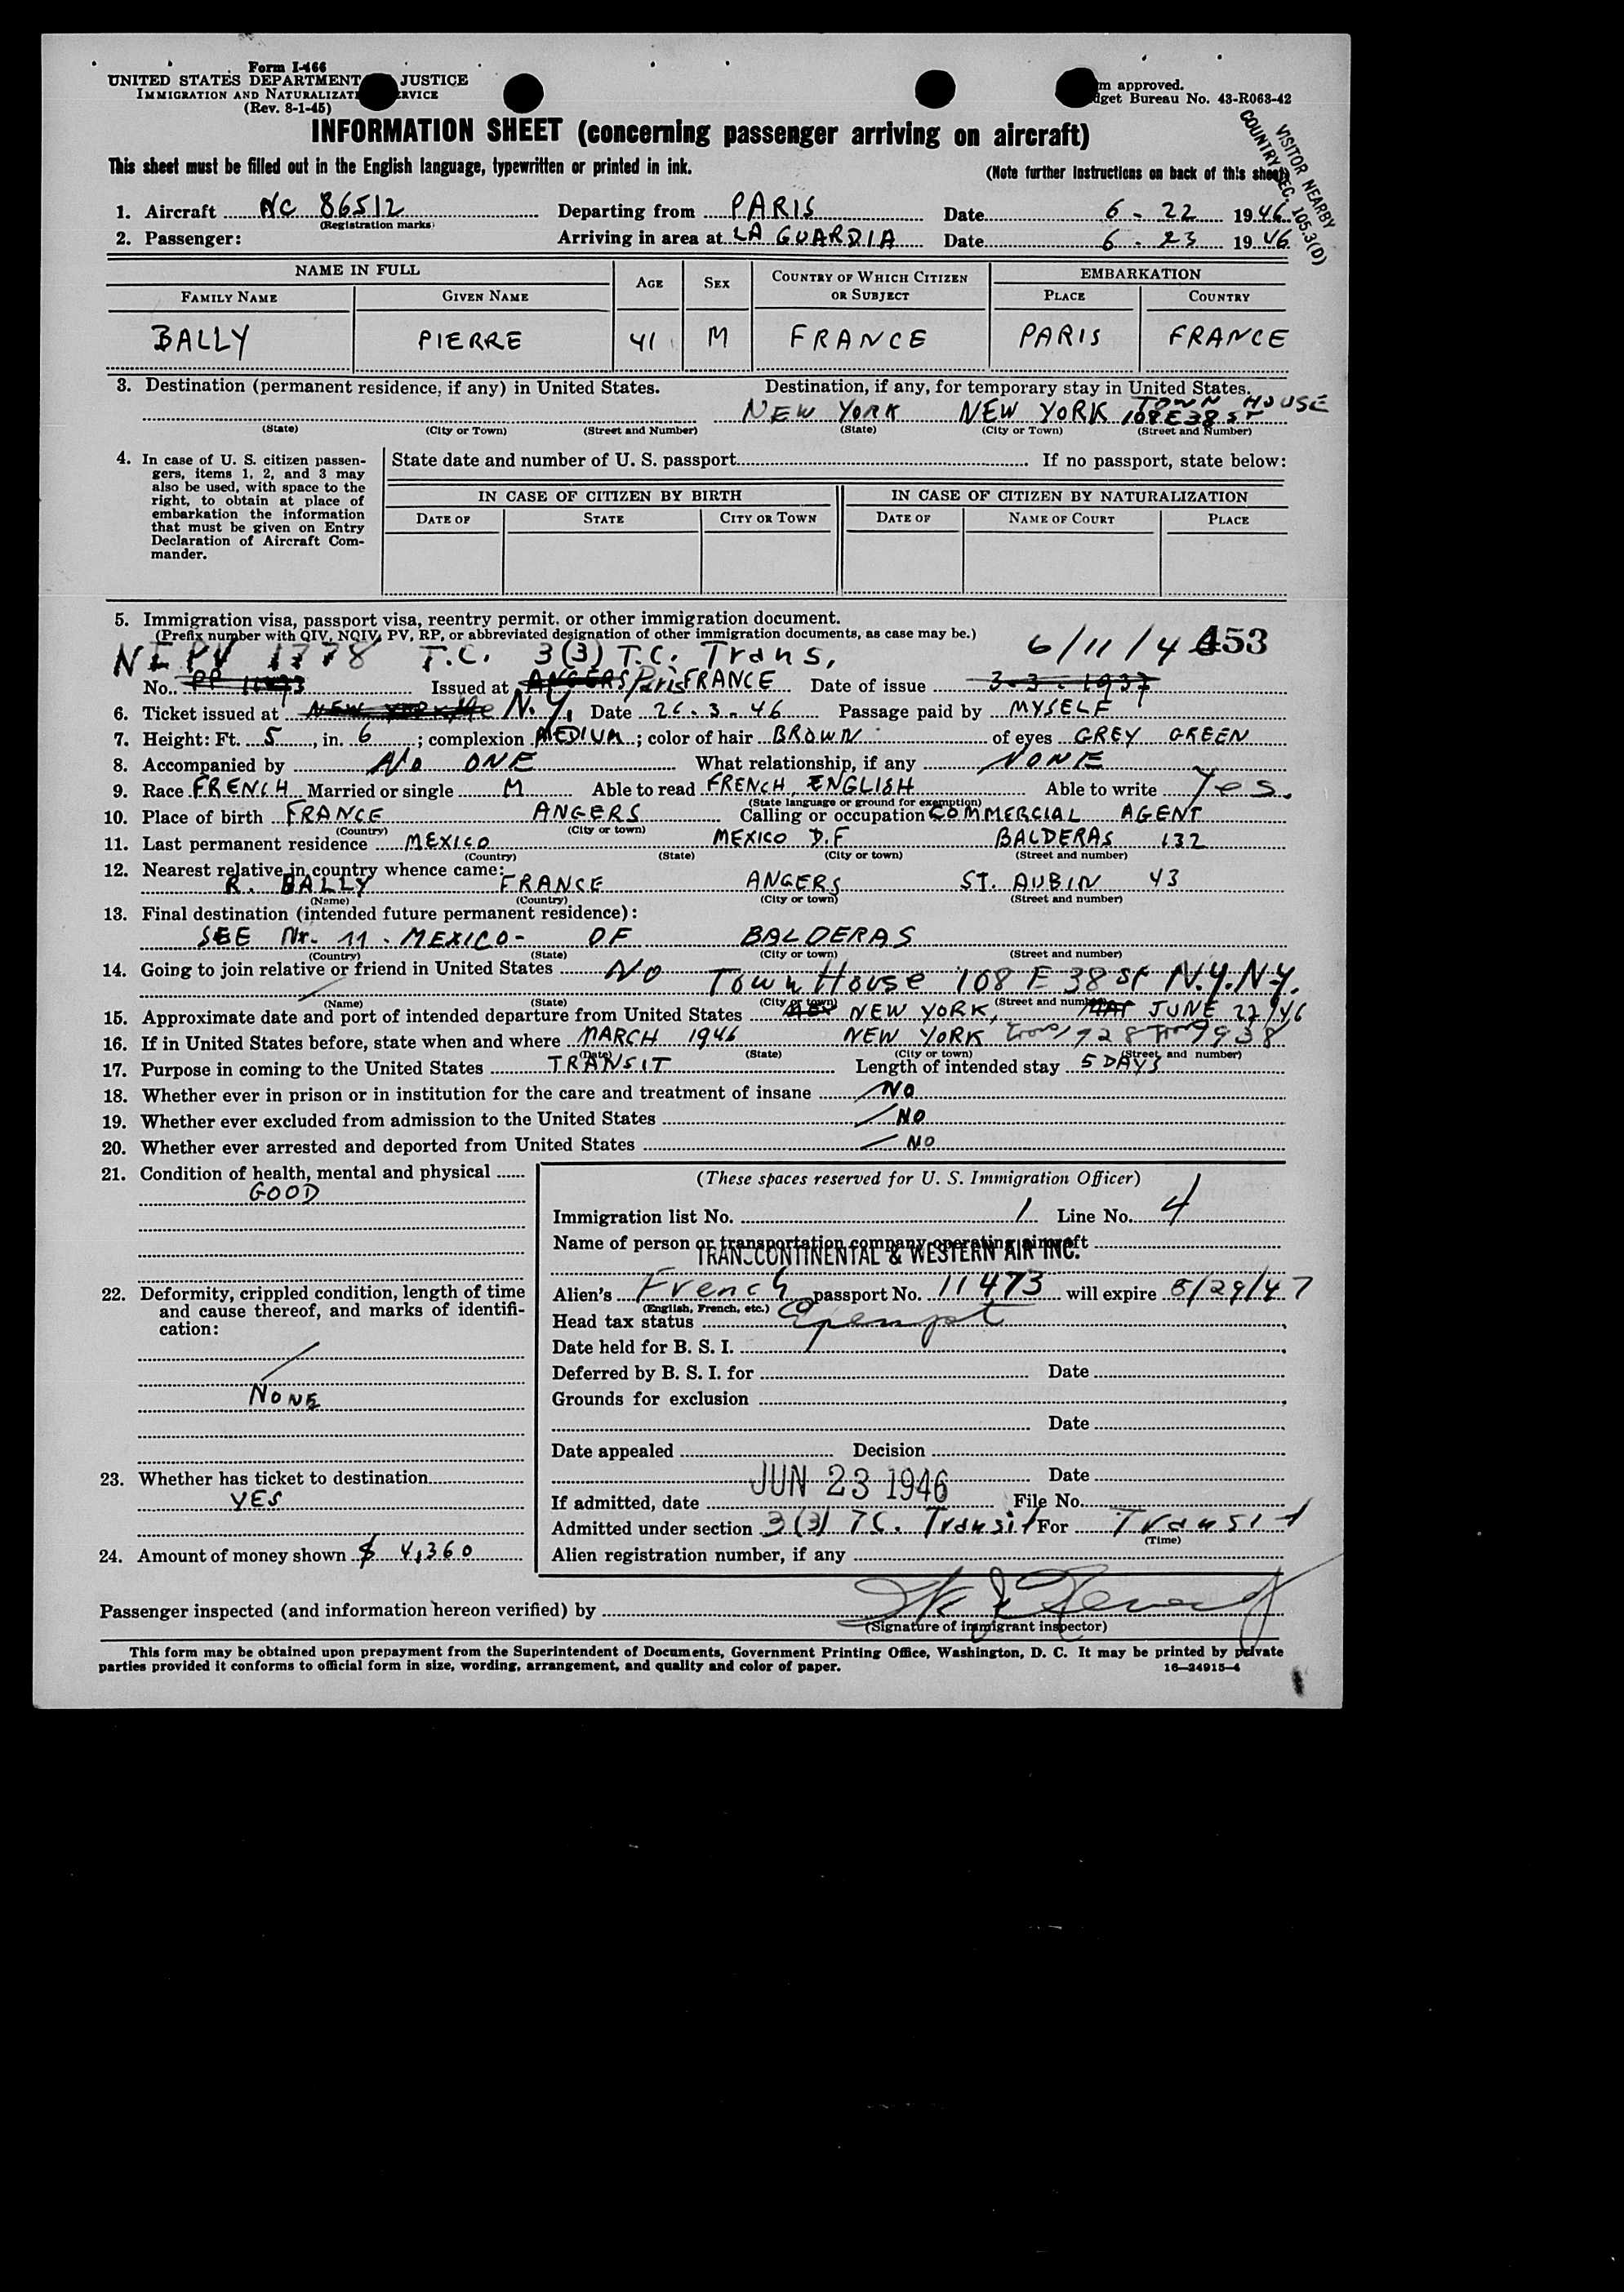 Form I-466
UNITED STATES DEPARTMENT JUSTICE
IMMIGRATION AND NATURALIZATI RVICE
(Rev. 8-1-45)
m approved.
dget Bureau No. 43-R063-42
VISITOR NEARBY
COUNTRY SEC. 105.3(D)
INFORMATION SHEET (concerning passenger arriving on aircraft)
This sheet must be filled out in the English language, typewritten or printed in ink.
(Note further instructions on back of this sheet)
1. Aircraft NC 86512 Departing from PARIS Date 6 - 22 1946
(Registration marks)
2. Passenger: Arriving in area at LA GUARDIA Date 6 - 23 1946
NAME IN FULL AGE SEX COUNTRY OF WHICH CITIZEN OR SUBJECT EMBARKATION
FAMILY NAME GIVEN NAME PLACE COUNTRY
BALLY PIERRE 41 M FRANCE PARIS FRANCE
3. Destination (permanent residence, if any) in United States. Destination, if any, for temporary stay in United States.
TOWN HOUSE
NEW YORK NEW YORK 108 E 38 ST
(State) (City or Town) (Street and Number) (State) (City or Town) (Street and Number)
4. In case of U. S. citizen passen-
gers, items 1, 2, and 3 may
also be used, with space to the
right, to obtain at place of
embarkation the information
that must be given on Entry
Declaration of Aircraft Com-
mander.
State date and number of U. S. passport If no passport, state below:
IN CASE OF CITIZEN BY BIRTH IN CASE OF CITIZEN BY NATURALIZATION
DATE OF STATE CITY OR TOWN DATE OF NAME OF COURT PLACE
5. Immigration visa, passport visa, reentry permit, or other immigration document.
(Prefix number with QIV, NQIV, PV, RP, or abbreviated designation of other immigration documents, as case may be.)
PV 1778 T.C. 3(3) T.C. Trans, 6/11/46 453
No. PP 11473 Issued at ANGERS Paris FRANCE Date of issue 3-3-1937
6. Ticket issued at NEW YORK N.Y. Date 26.3.46 Passage paid by MYSELF
7. Height: Ft. 5, in. 6; complexion MEDIUM; color of hair BROWN of eyes GREY GREEN
8. Accompanied by NO ONE What relationship, if any NONE
9. Race FRENCH Married or single M Able to read FRENCH, ENGLISH Able to write Yes.
(State language or ground for exemption)
10. Place of birth FRANCE ANGERS Calling or occupation COMMERCIAL AGENT
(Country) (City or town)
11. Last permanent residence MEXICO MEXICO D.F BALDERAS 132
(Country) (State) (City or town) (Street and number)
12. Nearest relative in country whence came:
R. BALLY FRANCE ANGERS ST. AUBIN 43
(Name) (Country) (City or town) (Street and number)
13. Final destination (intended future permanent residence):
SEE Nr. 11. MEXICO- DF BALDERAS
(Country) (State) (City or town) (Street and number)
14. Going to join relative or friend in United States NO
Town House 108 E 38 St N.Y.N.Y.
(Name) (State) (City or town) (Street and number)
15. Approximate date and port of intended departure from United States NEW YORK, JUNE 27/46
16. If in United States before, state when and where MARCH 1946 NEW YORK 1928 1938
(Date) (State) (City or town) (Street and number)
17. Purpose in coming to the United States TRANSIT Length of intended stay 5 DAYS
18. Whether ever in prison or in institution for the care and treatment of insane NO
19. Whether ever excluded from admission to the United States NO
20. Whether ever arrested and deported from United States NO
21. Condition of health, mental and physical
GOOD
22. Deformity, crippled condition, length of time
and cause thereof, and marks of identifi-
cation:
NONE
23. Whether has ticket to destination
YES
24. Amount of money shown $ 4,360
(These spaces reserved for U. S. Immigration Officer)
Immigration list No. 1 Line No. 4
Name of person or transportation company operating aircraft
TRANSCONTINENTAL & WESTERN AIR INC.
Alien's French passport No. 11473 will expire 8/29/47
(English, French, etc.)
Head tax status Exempt
Date held for B. S. I.
Deferred by B. S. I. for Date
Grounds for exclusion
Date
Date appealed Decision
Date
If admitted, date JUN 23 1946 File No.
Admitted under section 3(3) TC. Transit For Transit
(Time)
Alien registration number, if any
Passenger inspected (and information hereon verified) by
(Signature of immigrant inspector)
This form may be obtained upon prepayment from the Superintendent of Documents, Government Printing Office, Washington, D. C. It may be printed by private
parties provided it conforms to official form in size, wording, arrangement, and quality and color of paper. 16—24915-4